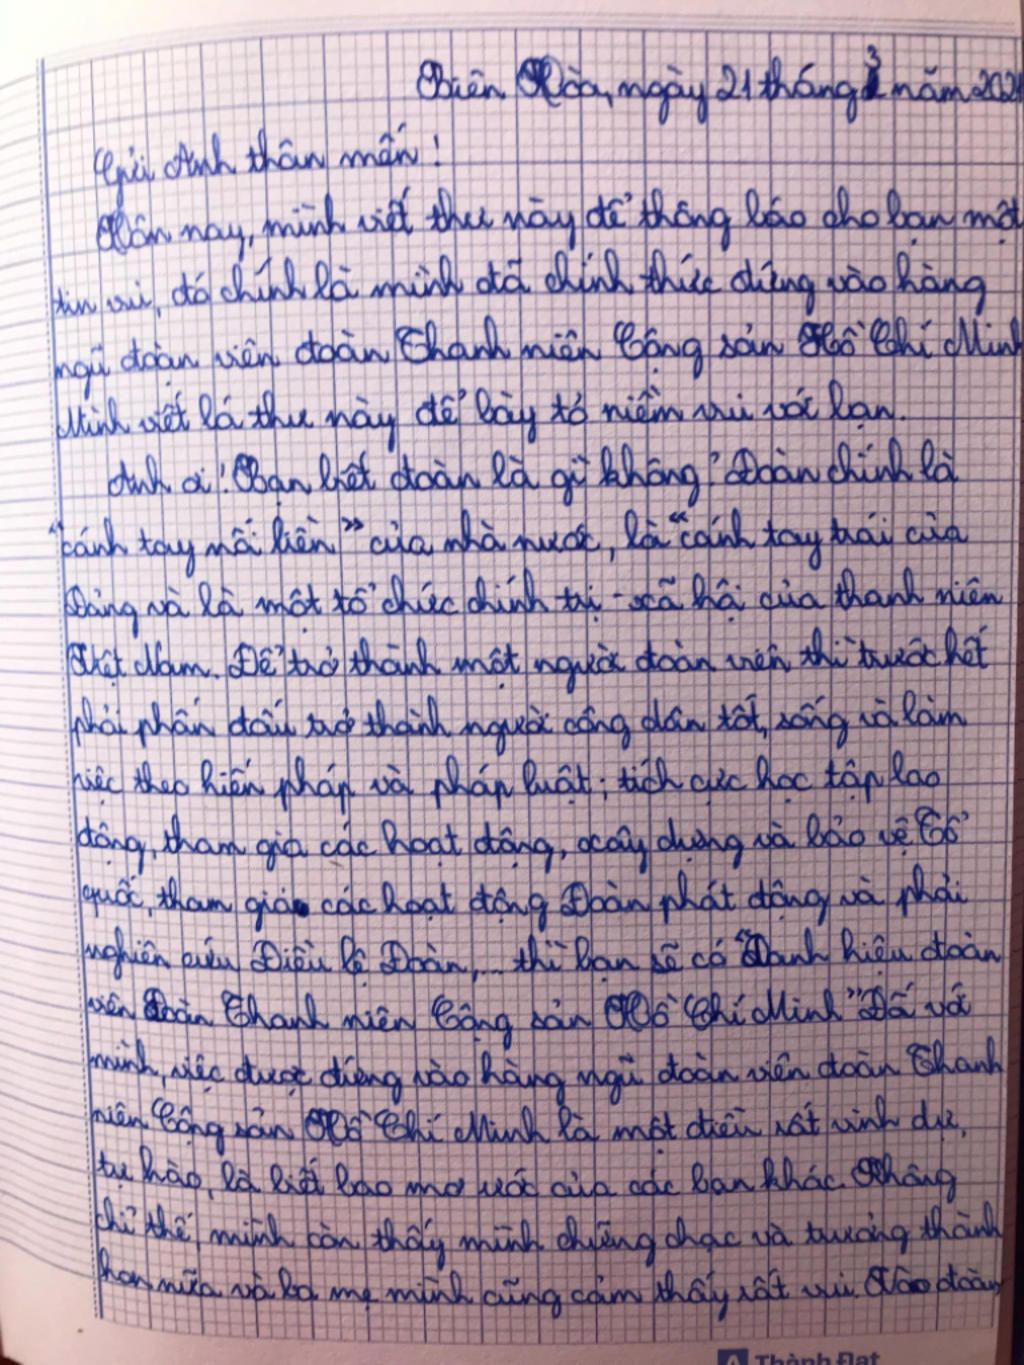 Biên Hòa, ngày 21 tháng 3 năm 202
Gửi Anh thân mến!
Hôm nay, mình viết thư này để thông báo cho bạn một
tin vui, đó chính là mình đã chính thức đứng vào hàng
ngũ đoàn viên đoàn Thanh niên Cộng sản Hồ Chí Minh
Mình viết lá thư này để bày tỏ niềm vui với bạn.
Anh ơi! Bạn biết đoàn là gì không? Đoàn chính là
"cánh tay nối liền" của nhà nước, là "cánh tay trái của
Đảng và là một tổ chức chính trị - xã hội của thanh niên
Việt Nam. Để trở thành một người đoàn viên thì trước hết
phải phấn đấu trở thành người công dân tốt, sống và làm
việc theo hiến pháp và pháp luật; tích cực học tập lao
động, tham gia các hoạt động, xây dựng và bảo vệ Tổ
quốc, tham gia các hoạt động Đoàn phát động và phải
nghiên cứu Điều lệ Đoàn,... thì bạn sẽ có "Danh hiệu đoàn
viên Đoàn Thanh niên Cộng sản Hồ Chí Minh" Đối với
mình, việc được đứng vào hàng ngũ đoàn viên đoàn Thanh
niên Cộng sản Hồ Chí Minh là một điều rất vinh dự,
tự hào, là biết bao mơ ước của các bạn khác. Không
chỉ thế, mình còn thấy mình chững chạc và trưởng thành
hơn nữa và ba mẹ mình cũng cảm thấy rất vui. Vào đoàn,
Thành Đạt